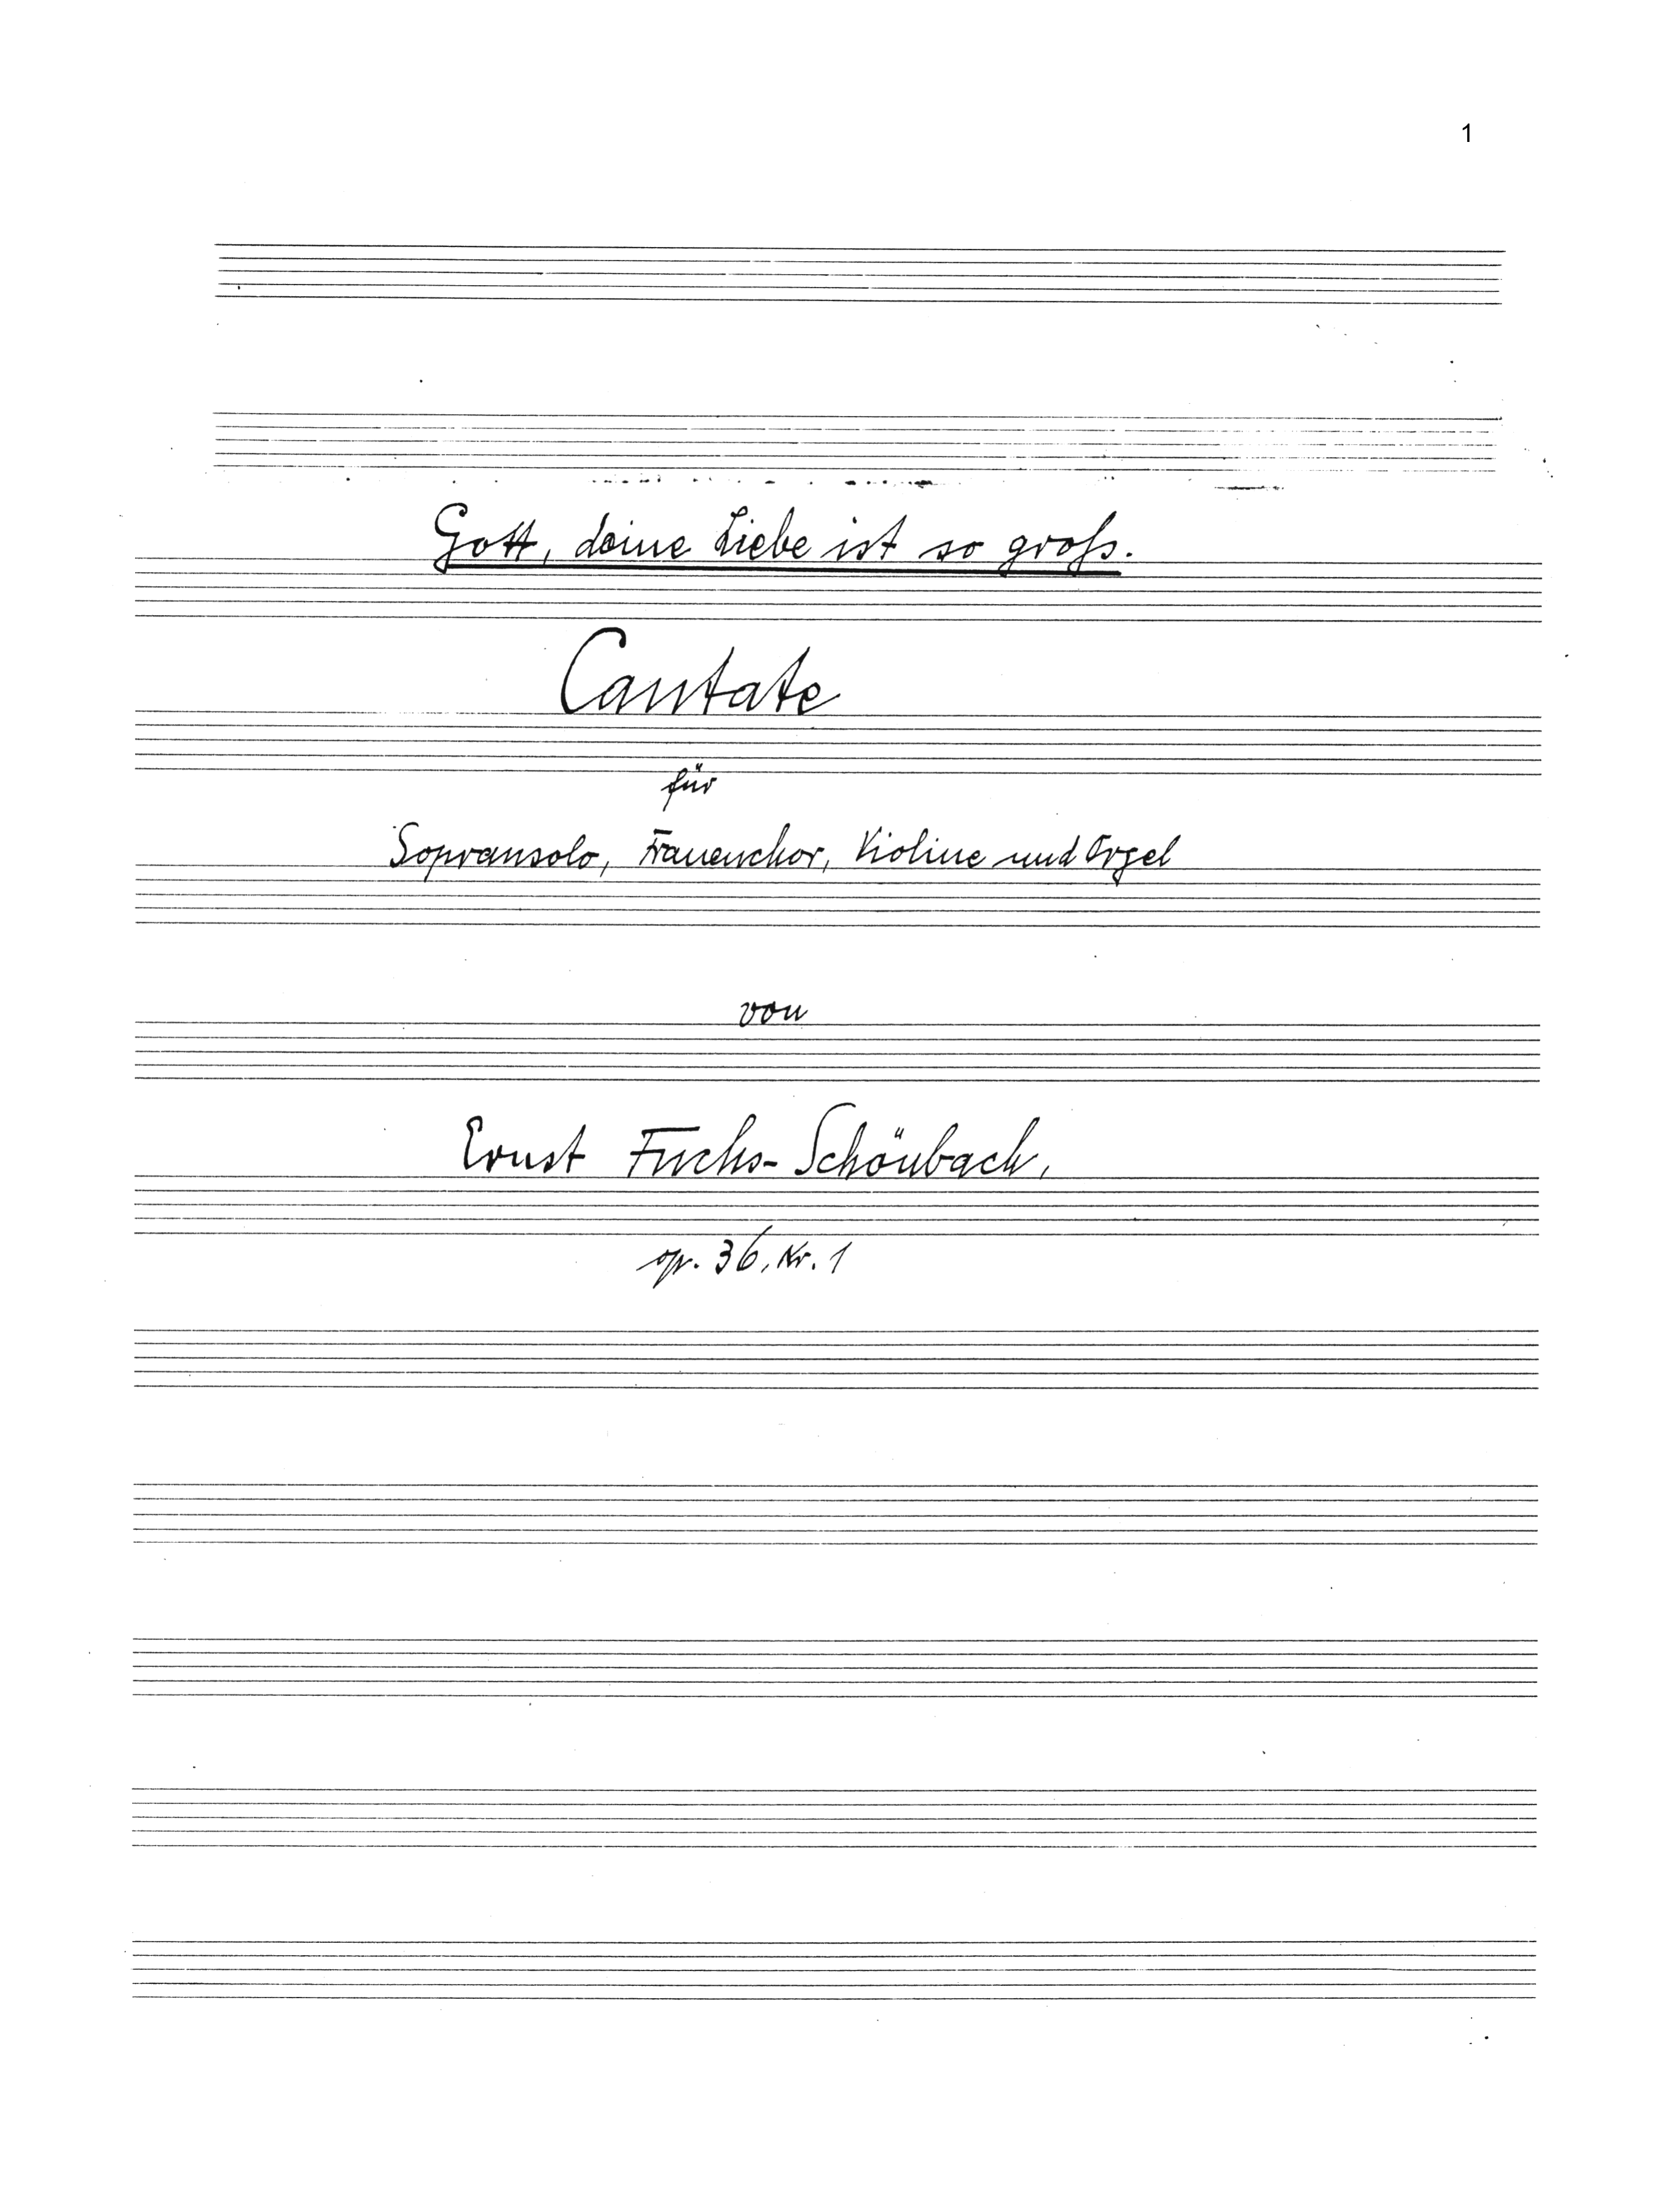 1
Gott, deine Liebe ist so groß.
Cantate
für
Sopransolo, Frauenchor, Violine und Orgel
von
Ernst Fuchs-Schönbach,
op. 36, Nr. 1